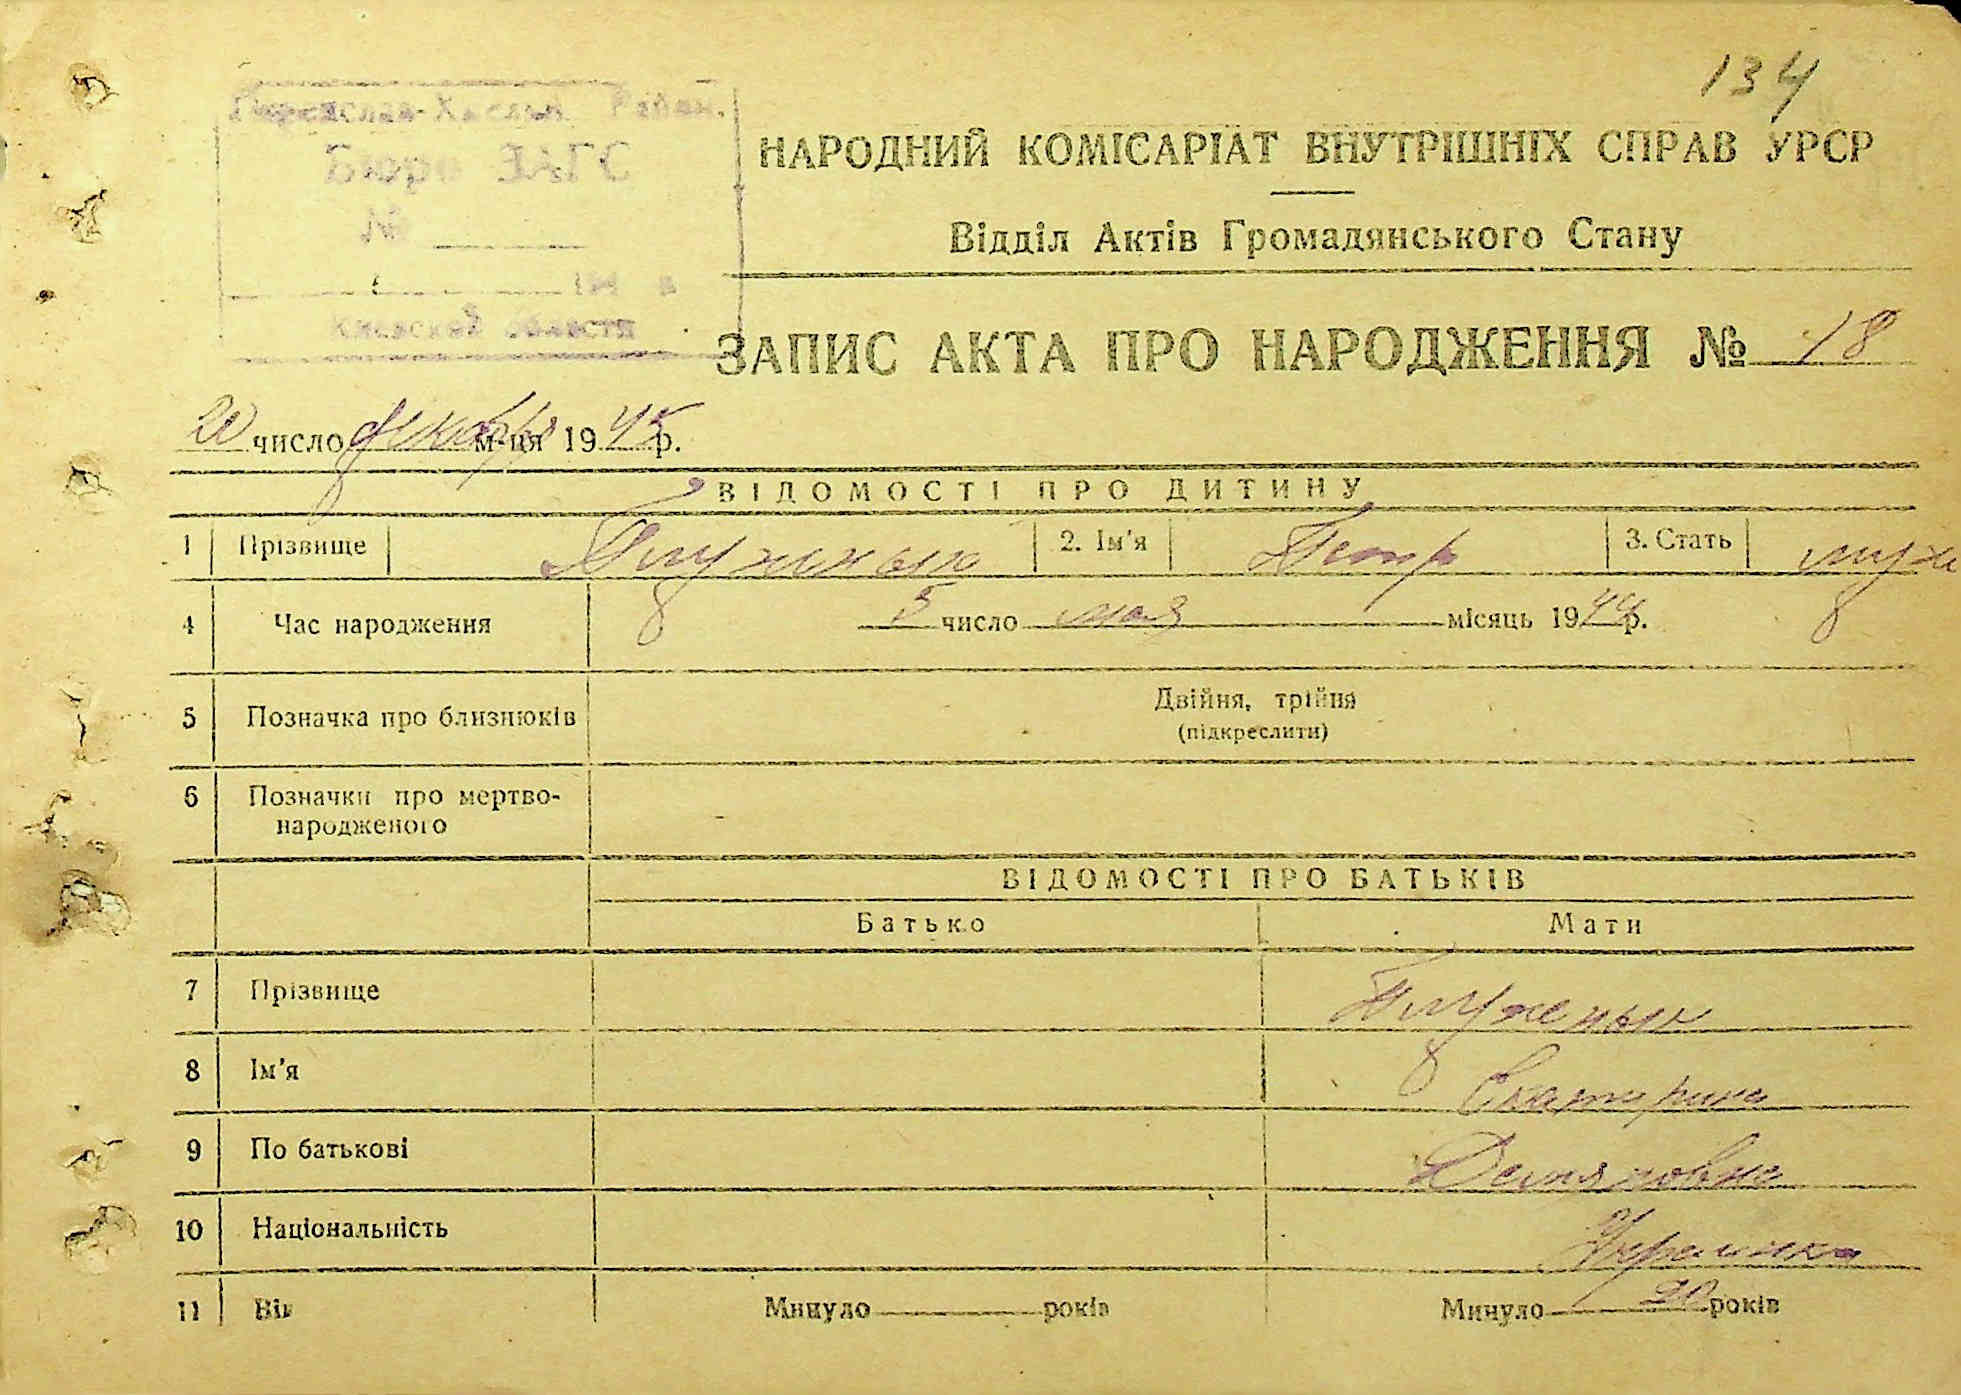 134
Переяслав-Хмельн. Район.
Бюро ЗАГС
№
194 г
Киевской области
НАРОДНИЙ КОМІСАРІАТ ВНУТРІШНІХ СПРАВ УРСР
Відділ Актів Громадянського Стану
ЗАПИС АКТА ПРО НАРОДЖЕННЯ № 18
20 число декабря м-ця 1945 р.
ВІДОМОСТІ ПРО ДИТИНУ
1 Прізвище 2. Ім'я Петр 3. Стать муж
4 Час народження 5 число мая місяць 1944 р.
5 Позначка про близнюків Двійня, трійня
(підкреслити)
6 Позначки про мертво-
народженого
ВІДОМОСТІ ПРО БАТЬКІВ
Батько Мати
7 Прізвище
8 Ім'я Екатерина
9 По батькові Демяновна
10 Національність Украинка
11 Вік Минуло років Минуло 20 років